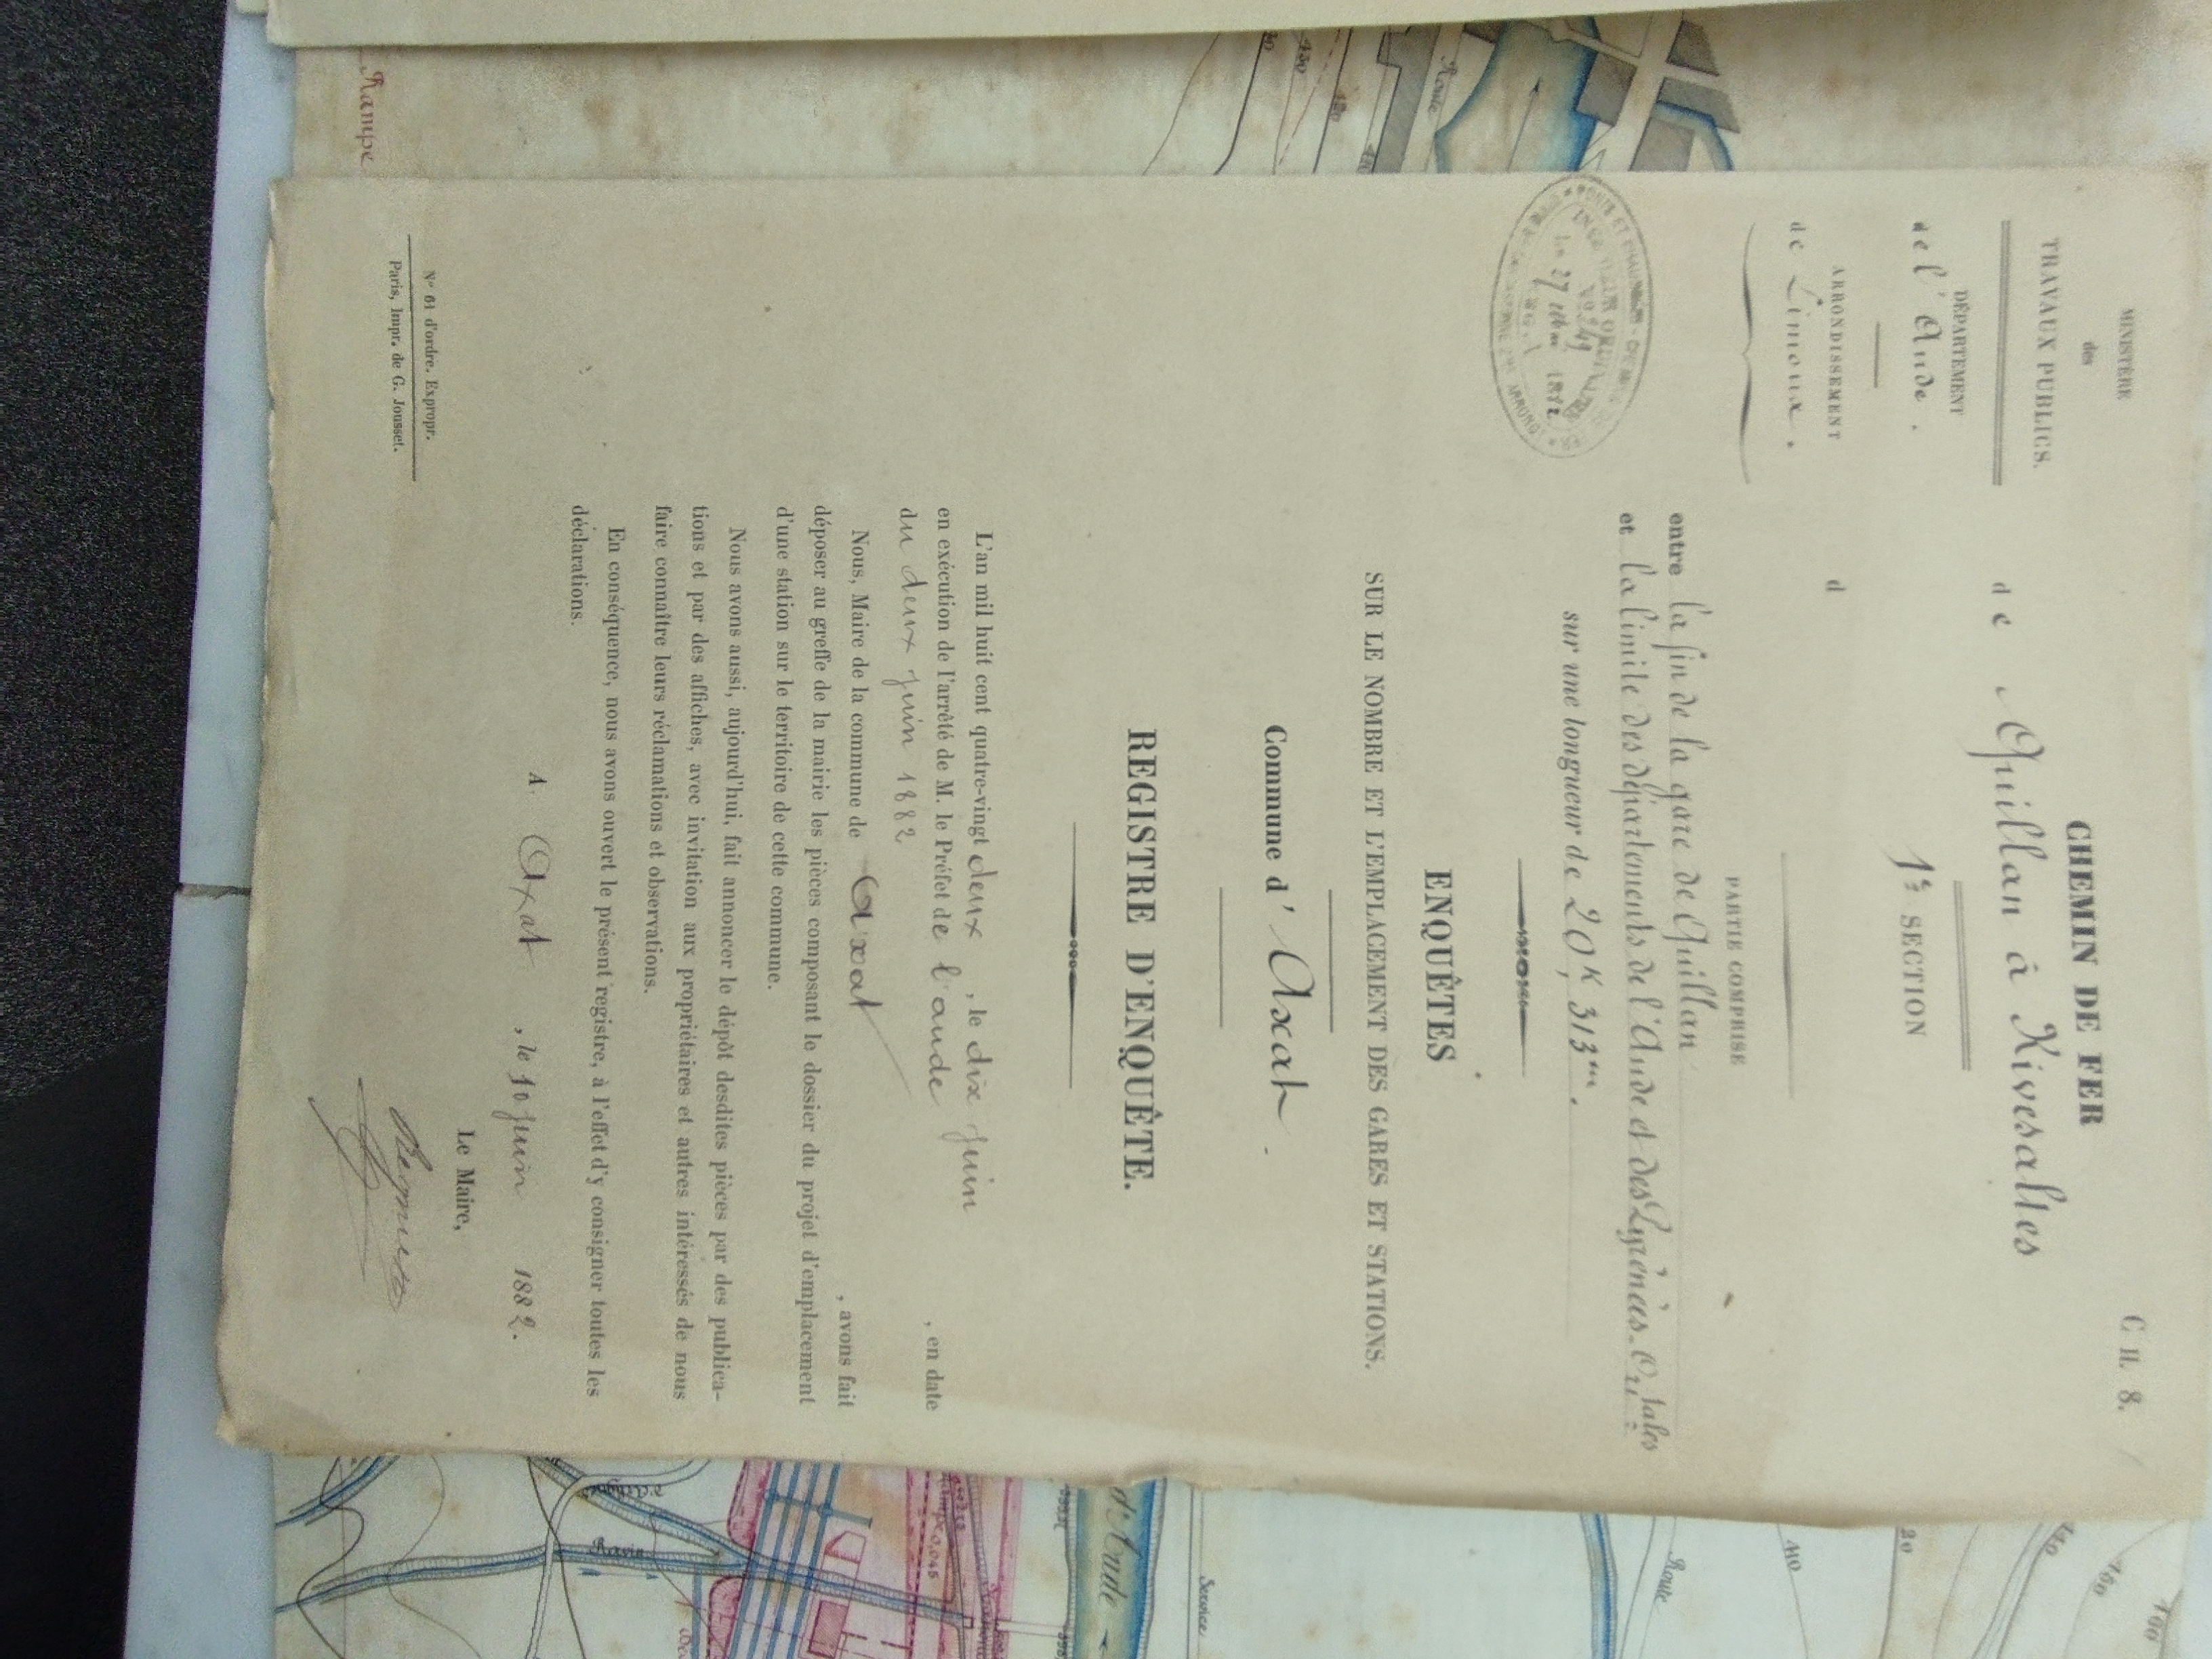 C H. 8.
MINISTÈRE
des
TRAVAUX PUBLICS.
DÉPARTEMENT
de l'Aude.
ARRONDISSEMENT
de Limoux.
CHEMIN DE FER
de Quillan à Rivesaltes
1re SECTION
d
PARTIE COMPRISE
entre la fin de la gare de Quillan
et la limite des départements de l'Aude et des Pyrénées-Ortales
sur une longueur de 20K,313m.
INGÉNIEUR ORDINAIRE
No 249
Le 27 1882
ENQUÊTES
SUR LE NOMBRE ET L'EMPLACEMENT DES GARES ET STATIONS.
Commune d'Axat.
REGISTRE D'ENQUÊTE.
L'an mil huit cent quatre-vingt deux, le dix juin
en exécution de l'arrêté de M. le Préfet de l'aude, en date
du deux juin 1882
Nous, Maire de la commune de Axat, avons fait
déposer au greffe de la mairie les pièces composant le dossier du projet d'emplacement
d'une station sur le territoire de cette commune.
Nous avons aussi, aujourd'hui, fait annoncer le dépôt desdites pièces par des publica-
tions et par des affiches, avec invitation aux propriétaires et autres intéressés de nous
faire connaître leurs réclamations et observations.
En conséquence, nous avons ouvert le présent registre, à l'effet d'y consigner toutes les
déclarations.
A Axat, le 10 juin 1882.
Le Maire,
No 61 d'ordre. Expropr.
Paris, Impr. de G. Jousset.
Route
420
430
Rampe
100
150
140
110
Route
Service
d'Aude
Rampe 0,045